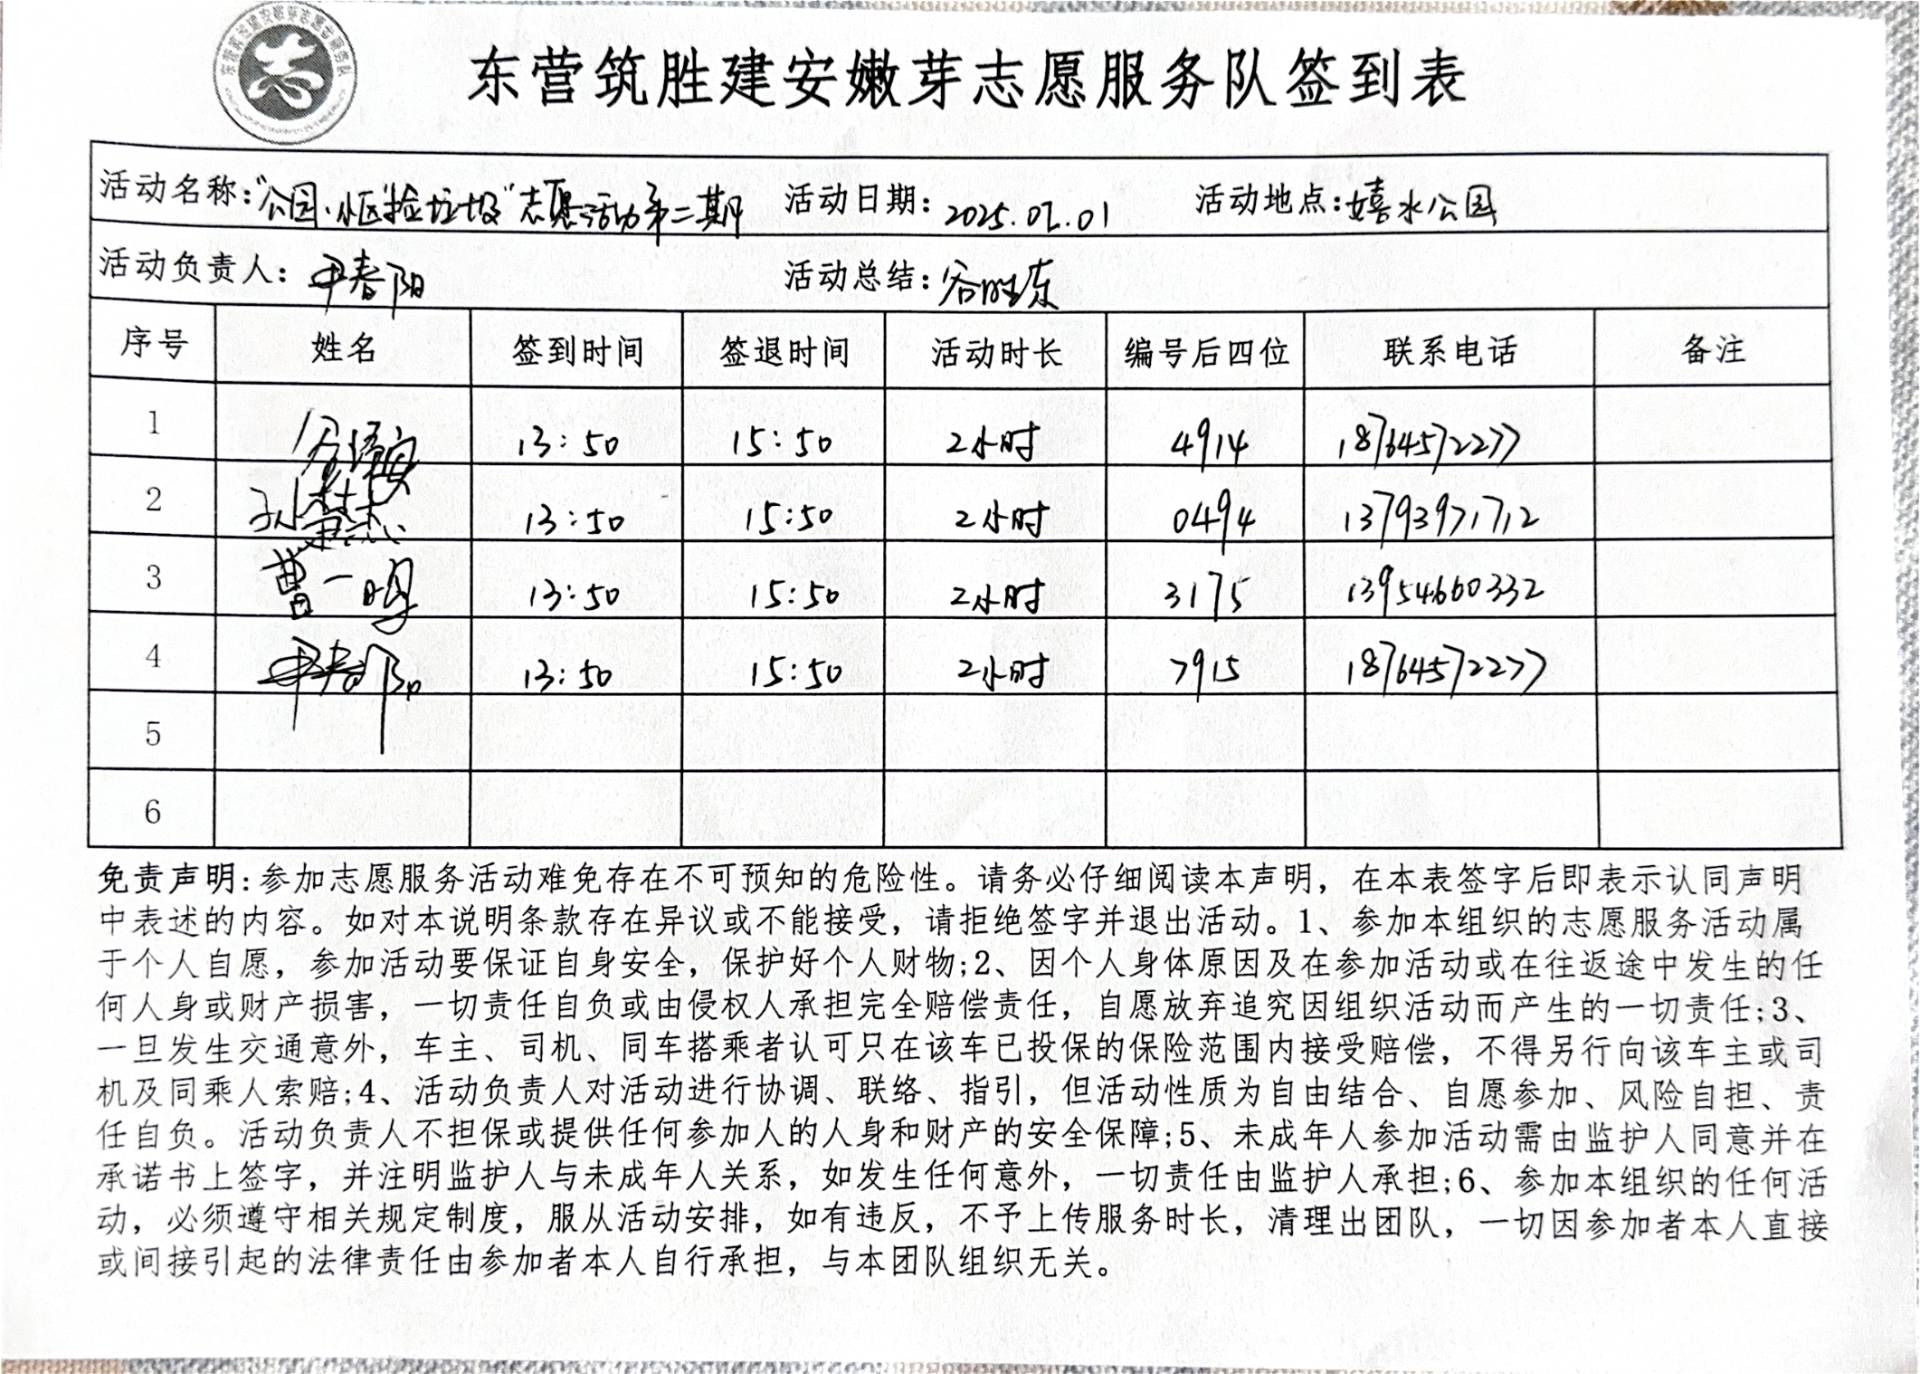 志
东营筑胜建安嫩芽志愿服务队签到表
活动名称:“公园·小区捡垃圾”志愿活动第二期 活动日期: 2025.02.01 活动地点:嬉水公园
活动负责人: 尹春阳 活动总结:谷胜东
序号 姓名 签到时间 签退时间 活动时长 编号后四位 联系电话 备注
1 13:50 15:50 2小时 4914 18764572277
2 13:50 15:50 2小时 0494 13793971712
3 曹一鸣 13:50 15:50 2小时 3175 13954660332
4 尹春阳 13:50 15:50 2小时 7915 18764572277
5
6
免责声明:参加志愿服务活动难免存在不可预知的危险性。请务必仔细阅读本声明，在本表签字后即表示认同声明
中表述的内容。如对本说明条款存在异议或不能接受，请拒绝签字并退出活动。1、参加本组织的志愿服务活动属
于个人自愿，参加活动要保证自身安全，保护好个人财物;2、因个人身体原因及在参加活动或在往返途中发生的任
何人身或财产损害，一切责任自负或由侵权人承担完全赔偿责任，自愿放弃追究因组织活动而产生的一切责任;3、
一旦发生交通意外，车主、司机、同车搭乘者认可只在该车已投保的保险范围内接受赔偿，不得另行向该车主或司
机及同乘人索赔;4、活动负责人对活动进行协调、联络、指引，但活动性质为自由结合、自愿参加、风险自担、责
任自负。活动负责人不担保或提供任何参加人的人身和财产的安全保障;5、未成年人参加活动需由监护人同意并在
承诺书上签字，并注明监护人与未成年人关系，如发生任何意外，一切责任由监护人承担;6、参加本组织的任何活
动，必须遵守相关规定制度，服从活动安排，如有违反，不予上传服务时长，清理出团队，一切因参加者本人直接
或间接引起的法律责任由参加者本人自行承担，与本团队组织无关。